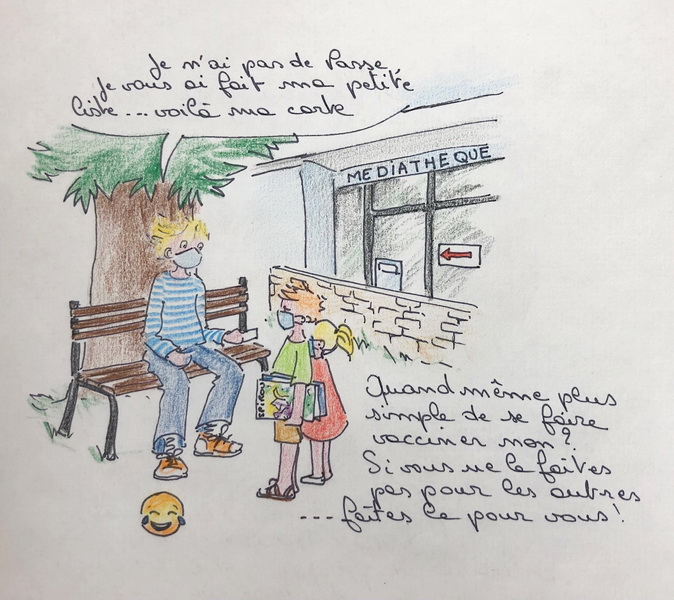 Je n'ai pas de Passe
Je vous ai fait ma petite
liste... voilà ma carte
MEDIATHEQUE
Quand même plus
simple de se faire
vacciner non?
Si vous ne le faites
pas pour les autres
... faites le pour vous!